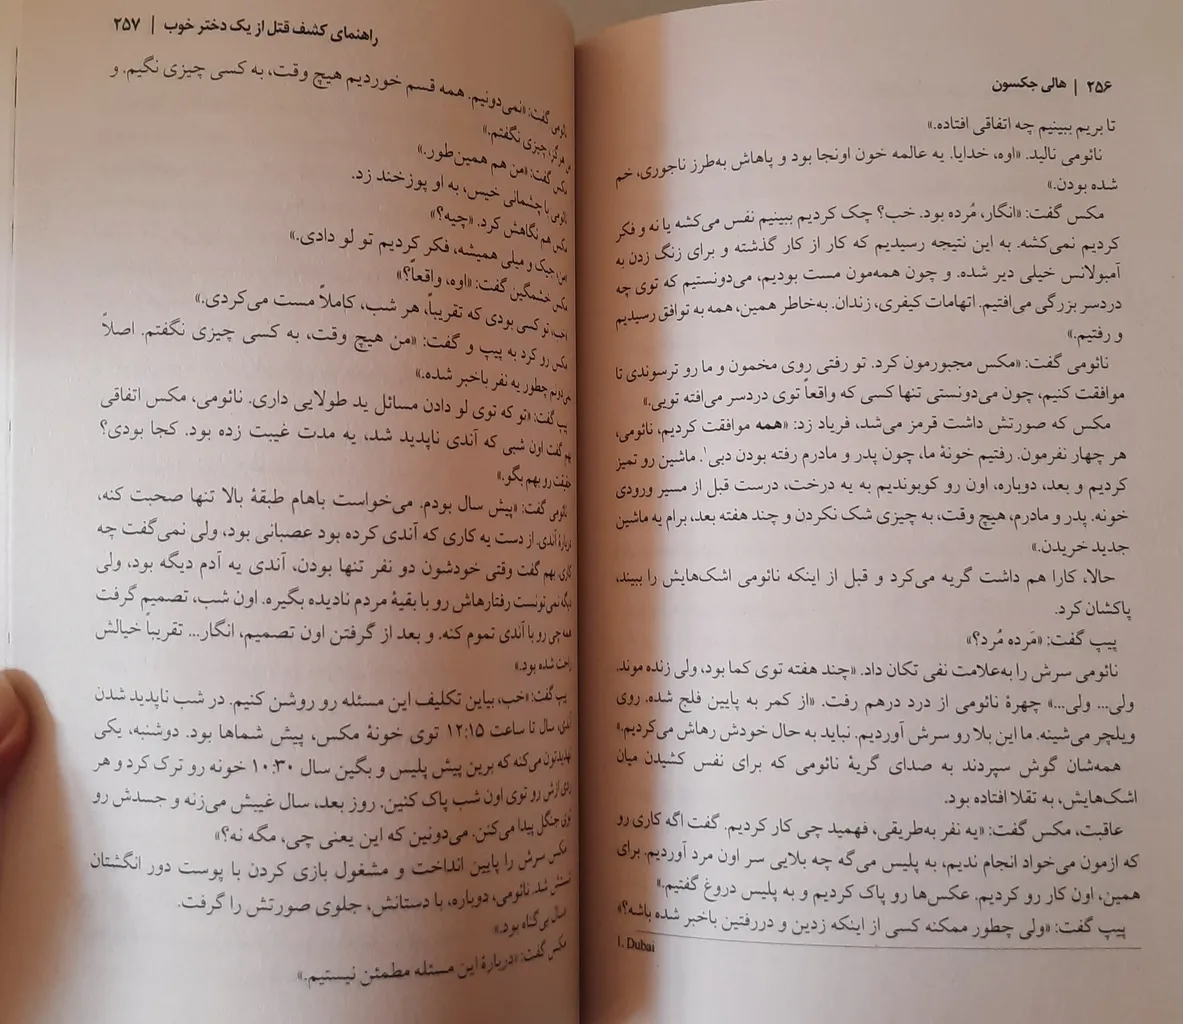 ۲۵۶ | هالی جکسون
تا بریم ببینیم چه اتفاقی افتاده.»
نائومی نالید. «اوه، خدایا. یه عالمه خون اونجا بود و پاهاش به‌طرز ناجوری، خم
شده بودن.»
مکس گفت: «انگار، مُرده بود. خب؟ چک کردیم ببینیم نفس می‌کشه یا نه و فکر
کردیم نمی‌کشه. به این نتیجه رسیدیم که کار از کار گذشته و برای زنگ زدن به
آمبولانس خیلی دیر شده. و چون همه‌مون مست بودیم، می‌دونستیم که توی چه
دردسر بزرگی می‌افتیم. اتهامات کیفری، زندان. به‌خاطر همین، همه به توافق رسیدیم
و رفتیم.»
نائومی گفت: «مکس مجبورمون کرد. تو رفتی روی مخمون و ما رو ترسوندی تا
موافقت کنیم، چون می‌دونستی تنها کسی که واقعاً توی دردسر می‌افته تویی.»
مکس که صورتش داشت قرمز می‌شد، فریاد زد: «همه موافقت کردیم، نائومی،
هر چهار نفرمون. رفتیم خونهٔ ما، چون پدر و مادرم رفته بودن دبی۱. ماشین رو تمیز
کردیم و بعد، دوباره، اون رو کوبوندیم به یه درخت، درست قبل از مسیر ورودی
خونه. پدر و مادرم، هیچ وقت، به چیزی شک نکردن و چند هفته بعد، برام یه ماشین
جدید خریدن.»
حالا، کارا هم داشت گریه می‌کرد و قبل از اینکه نائومی اشک‌هایش را ببیند،
پاکشان کرد.
پیپ گفت: «مَرده مُرد؟»
نائومی سرش را به‌علامت نفی تکان داد. «چند هفته توی کما بود، ولی زنده موند.
ولی... ولی...» چهرهٔ نائومی از درد درهم رفت. «از کمر به پایین فلج شده. روی
ویلچر می‌شینه. ما این بلا رو سرش آوردیم. نباید به حال خودش رهاش می‌کردیم.»
همه‌شان گوش سپردند به صدای گریهٔ نائومی که برای نفس کشیدن میان
اشک‌هایش، به تقلا افتاده بود.
عاقبت، مکس گفت: «یه نفر به‌طریقی، فهمید چی کار کردیم. گفت اگه کاری رو
که ازمون می‌خواد انجام ندیم، به پلیس می‌گه چه بلایی سر اون مرد آوردیم. برای
همین، اون کار رو کردیم. عکس‌ها رو پاک کردیم و به پلیس دروغ گفتیم.»
پیپ گفت: «ولی چطور ممکنه کسی از اینکه زدین و دررفتین باخبر شده باشه؟»
1. Dubai
راهنمای کشف قتل از یک دختر خوب | ۲۵۷
نائومی گفت: «نمی‌دونیم. همه قسم خوردیم هیچ وقت، به کسی چیزی نگیم. و
من هرگز، چیزی نگفتم.»
مکس گفت: «من هم همین‌طور.»
نائومی با چشمانی خیس، به او پوزخند زد.
مکس هم نگاهش کرد. «چیه؟»
«من، جیک و میلی همیشه، فکر کردیم تو لو دادی.»
مکس خشمگین گفت: «اوه، واقعاً؟»
«خب، تو کسی بودی که تقریباً، هر شب، کاملاً مست می‌کردی.»
مکس رو کرد به پیپ و گفت: «من هیچ وقت، به کسی چیزی نگفتم. اصلاً
نمی‌دونم چطور یه نفر باخبر شده.»
پیپ گفت: «تو که توی لو دادن مسائل ید طولایی داری. نائومی، مکس اتفاقی
بهم گفت اون شبی که آندی ناپدید شد، یه مدت غیبت زده بود. کجا بودی؟
حقیقت رو بهم بگو.»
نائومی گفت: «پیش سال بودم. می‌خواست باهام طبقهٔ بالا تنها صحبت کنه،
دربارهٔ آندی. از دست یه کاری که آندی کرده بود عصبانی بود، ولی نمی‌گفت چه
کاری. بهم گفت وقتی خودشون دو نفر تنها بودن، آندی یه آدم دیگه بود، ولی
دیگه نمی‌تونست رفتارهاش رو با بقیهٔ مردم نادیده بگیره. اون شب، تصمیم گرفت
همه چی رو با آندی تموم کنه. و بعد از گرفتن اون تصمیم، انگار... تقریباً خیالش
راحت شده بود.»
پیپ گفت: «خب، بیاین تکلیف این مسئله رو روشن کنیم. در شب ناپدید شدن
آندی، سال تا ساعت ۱۲:۱۵ توی خونهٔ مکس، پیش شماها بود. دوشنبه، یکی
تهدیدتون می‌کنه که برین پیش پلیس و بگین سال ۱۰:۳۰ خونه رو ترک کرد و هر
ردی ازش رو توی اون شب پاک کنین. روز بعد، سال غیبش می‌زنه و جسدش رو
توی جنگل پیدا می‌کنن. می‌دونین که این یعنی چی، مگه نه؟»
مکس سرش را پایین انداخت و مشغول بازی کردن با پوست دور انگشتان
شستش شد. نائومی، دوباره، با دستانش، جلوی صورتش را گرفت.
«سال بی‌گناه بود.»
مکس گفت: «دربارهٔ این مسئله مطمئن نیستیم.»